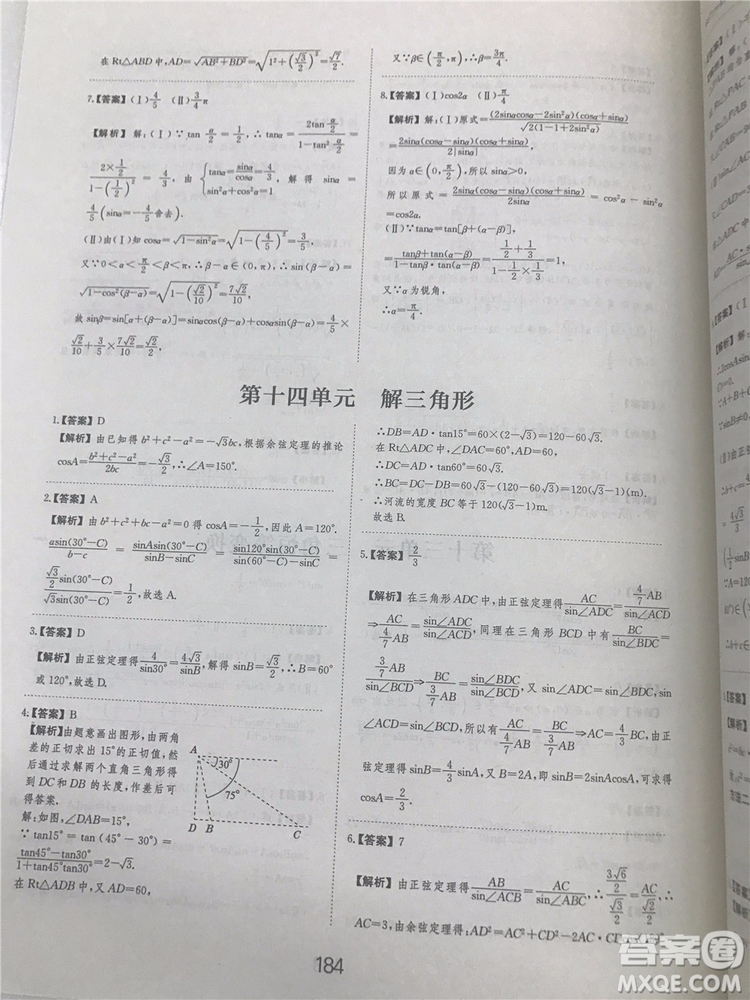 在 Rt△ABD 中，AD=√(AB²+BD²)=√(1²+(√3/2)²)=√7/2.
7.【答案】(Ⅰ)4/5 (Ⅱ)3/4π
【解析】解：(Ⅰ)∵tan α/2=1/2，∴tanα=2tan(α/2)/(1-tan²(α/2))=
(2×1/2)/(1-(1/2)²)=4/3，由{tanα=sinα/cosα=4/3, sin²α+cos²α=1 解得 sinα=
4/5(sinα=-4/5舍去).
(Ⅱ)由(Ⅰ)知 cosα=√(1-sin²α)=√(1-(4/5)²)=3/5，
又∵0<α<π/2<β<π，∴β-α∈(0,π)，∴sin(β-α)=
√(1-cos²(β-α))=√(1-(√2/10)²)=7√2/10，
故 sinβ=sin[α+(β-α)]=sinαcos(β-α)+cosαsin(β-α)=4/5×
√2/10+3/5×7√2/10=√2/2
又∵β∈(π/2,π)，∴β=3π/4.
8.【答案】(Ⅰ)cos2α (Ⅱ)π/4
【解析】解：(Ⅰ)原式=(2sinαcosα-2sin²α)(cosα+sinα)/√(2(1-1+2sin²α))
=2sinα(cosα-sinα)(cosα+sinα)/2|sinα|，
因为 α∈(0,π)，所以 sinα>0，
所以原式=2sinα(cosα-sinα)(cosα+sinα)/2sinα=cos²α-sin²α
=cos2α.
(Ⅱ)tanα=tan[β+(α-β)]
=(tanβ+tan(α-β))/(1-tanβ·tan(α-β))=(1/2+1/3)/(1-1/2×1/3)=1，
又∵α为锐角，
∴α=π/4.
第十四单元 解三角形
1.【答案】D
【解析】由已知得 b²+c²-a²=-√3bc，根据余弦定理的推论
cosA=(b²+c²-a²)/2bc=-√3/2，∴A=150°.
2.【答案】A
【解析】由 b²+c²+bc-a²=0 得 cosA=-1/2，因此 A=120°.
asin(30°-C)/(b-c)=sinAsin(30°-C)/(sinB-sinC)=sin120°sin(30°-C)/(sin(60°-C)-sinC)=
(√3/2)sin(30°-C)/√3sin(30°-C)=1/2，故选 A.
3.【答案】D
【解析】由正弦定理得4/sin30°=4√3/sinB，解得 sinB=√3/2，∴B=60°
或 120°，故选 D.
4.【答案】B
【解析】由题意画出图形，由两角
差的正切求出 15°的正切值，然
后通过求解两个直角三角形得
到 DC 和 DB 的长度，作差后可
得答案.
解：如图，∠DAB=15°，
∵tan15°=tan(45°-30°)=
(tan45°-tan30°)/(1+tan45°tan30°)=2-√3.
在 Rt△ADB 中，又 AD=60，
A
30°
75°
D B C
∴DB=AD·tan15°=60×(2-√3)=120-60√3.
在 Rt△ADC 中，∠DAC=60°，AD=60，
∴DC=AD·tan60°=60√3.
∴BC=DC-DB=60√3-(120-60√3)=120(√3-1)(m).
∴河流的宽度 BC 等于 120(√3-1)(m).
故选 B.
5.【答案】2/3
【解析】在三角形 ADC 中，由正弦定理得AC/sin∠ADC=(4/7)AB/sin∠ACD
⇒AC/(4/7)AB=sin∠ADC/sin∠ACD，同理在三角形 BCD 中有BC/sin∠BDC=
(3/7)AB/sin∠BCD⇒BC/(3/7)AB=sin∠BDC/sin∠BCD，又 sin∠BDC=sin∠ADC，sin
∠ACD=sin∠BCD，所以有AC/(4/7)AB=BC/(3/7)AB⇒AC=4/3BC，由正
弦定理得 sinB=4/3sinA，又 B=2A，即 sinB=2sinAcosA，可求得
cosA=2/3.
6.【答案】7
【解析】由正弦定理得AB/sin∠ACB=AC/sin∠ABC，∴(3√6/2)/(√3/2)=AC/(√2/2)，∴
AC=3，由余弦定理得：AD²=AC²+CD²-2AC·CD
184
答案圈
MXQE.COM